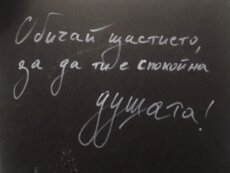 Обичай щастието,
за да ти е спокойна
душата!